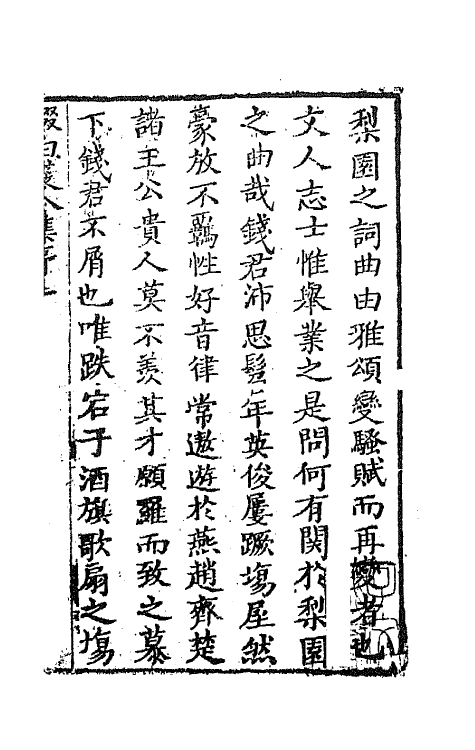 梨園之詞曲由雅頌變騷賦而再變者也
文人志士惟舉業之是問何有関於梨園
之曲哉錢君沛思髫年英俊屢蹶塲屋然
豪放不羈性好音律常遨遊於燕趙齊楚
諸王公貴人莫不羨其才願羅而致之慕
下錢君不屑也唯跌宕于酒旗歌扇之塲
綴白裘八集序一